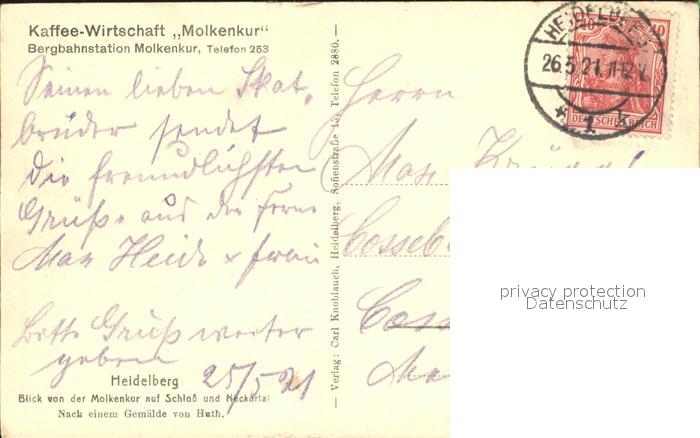 Kaffee-Wirtschaft „Molkenkur“
Bergbahnstation Molkenkur, Telefon 253
Seinen lieben Skat-
brüder sendet
die freundlichsten
Grüße aus der Ferne
Max Heide u Frau
Bitte Gruß weiter
geben
25/5 21
Heidelberg
Blick von der Molkenkur auf Schloß und Neckartal
Nach einem Gemälde von Huth.
Verlag: Carl Knoblauch, Heidelberg, Sofienstraße Telefon 2880.
HEIDELBERG
26.5.21. 11-12 V.
* 1 k
10
DEUTSCHES REICH
Herrn
Max
Cosseb
privacy protection
Datenschutz